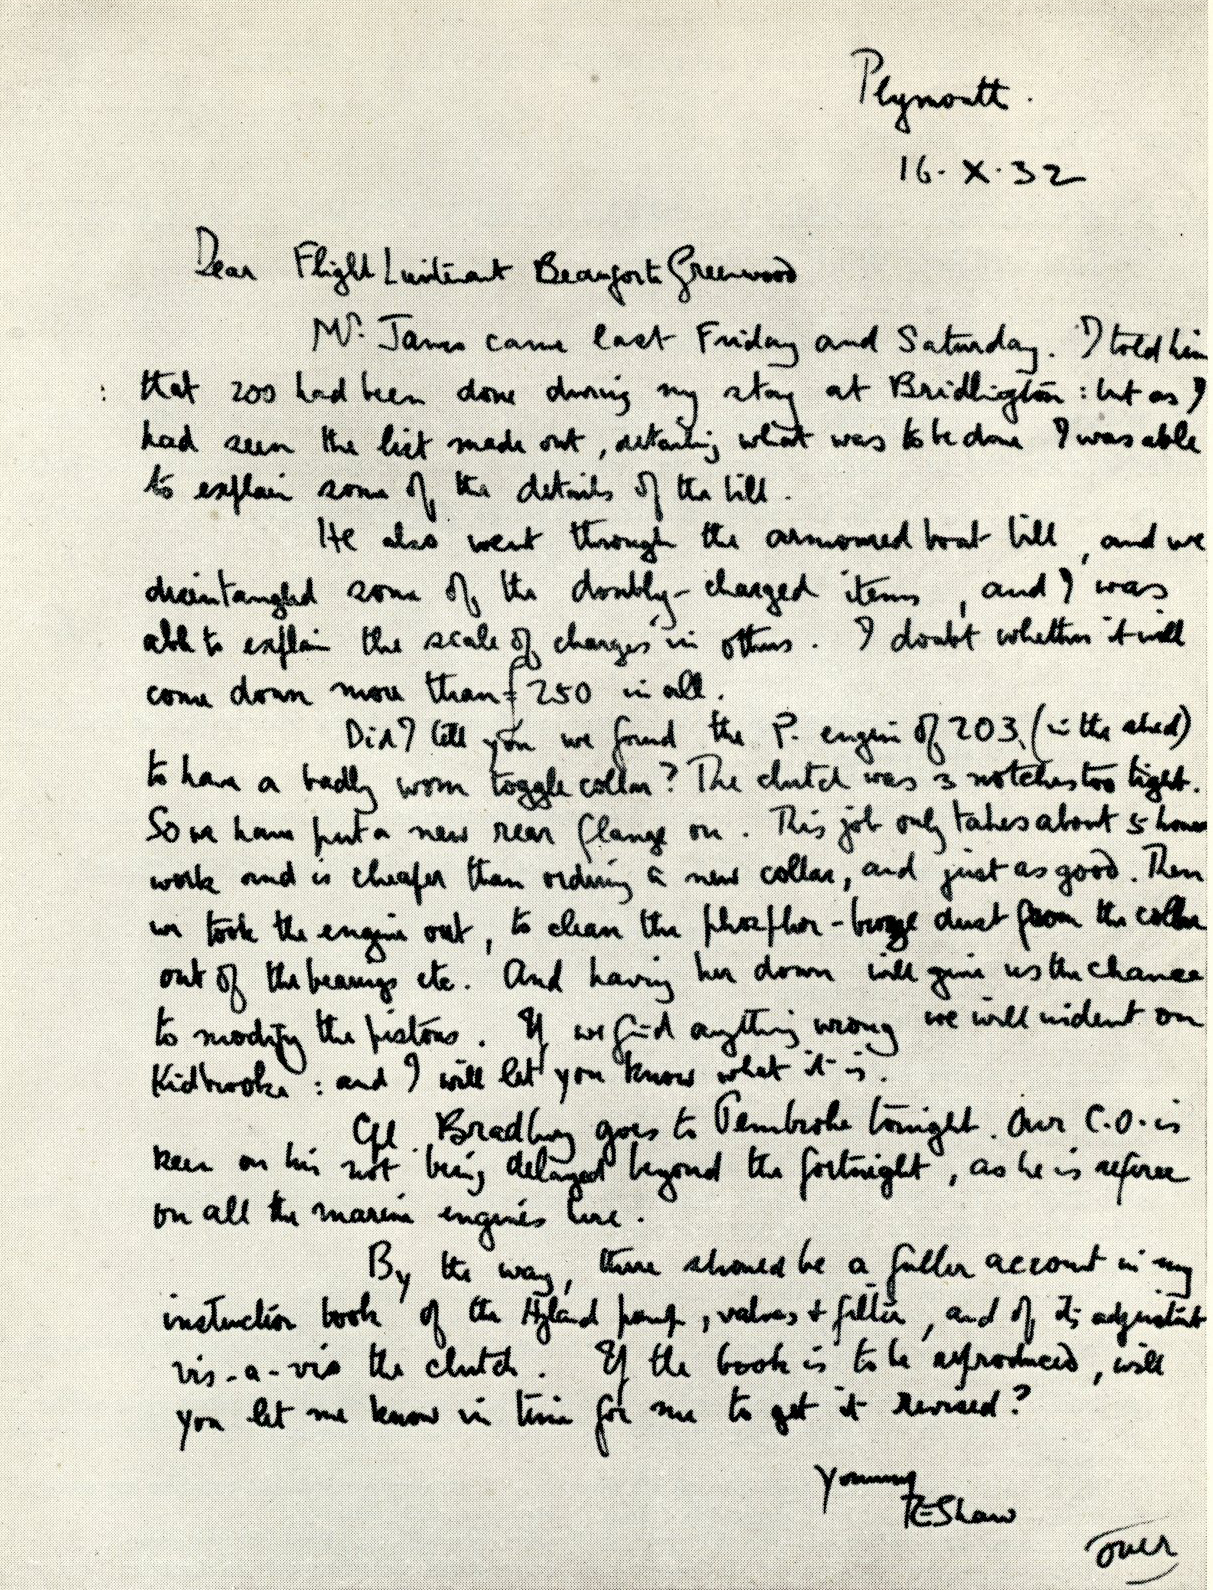 Plymouth.
16.X.32
Dear Flight Lieutenant Beauforte Greenwood
Mr. James came last Friday and Saturday. I told him
that 200 had been done during my stay at Bridlington: but as I
had seen the list made out, detailing what was to be done I was able
to explain some of the details of the bill.
He also went through the armoured boat bill, and we
disentangled some of the doubly-charged items, and I was
able to explain the scale of charges in others. I doubt whether it will
come down more than £250 in all.
Did I tell you we found the P. engine of 203 (in the shed)
to have a badly worn toggle collar? The clutch was 3 notches too tight.
So we have put a new rear flange on. This job only takes about 5 hours
work and is cheaper than ordering a new collar, and just as good. Then
we took the engine out, to clean the phosphor-bronze dust from the collar
out of the bearings etc. And having her down will give us the chance
to modify the pistons. If we find anything wrong we will indent on
Kidbrooke: and I will let you know what it is.
Cpl Bradbury goes to Pembroke tonight. Our C.O. is
keen on his not being delayed beyond the fortnight, as he is referee
on all the marine engines here.
By the way, there should be a fuller account in my
instruction book of the Hyland pump, valves + filter, and of its adjustment
vis-a-vis the clutch. If the book is to be reproduced, will
you let me know in time for me to get it revised?
Yours
TEShaw
over